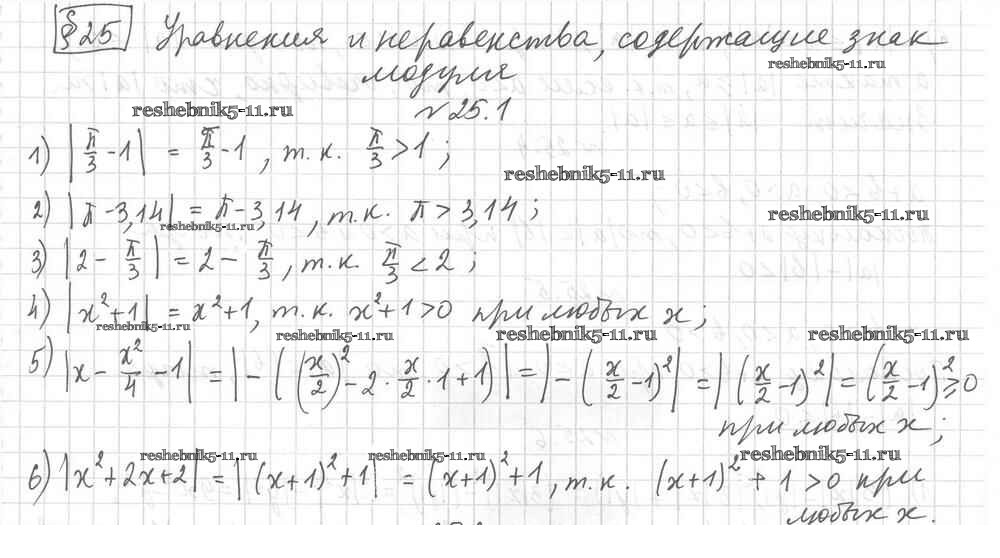 §25 Уравнения и неравенства, содержащие знак
reshebnik5-11.ru
модуля
reshebnik5-11.ru
№25.1
1) |π/3 - 1| = π/3 - 1, т.к. π/3 > 1;
reshebnik5-11.ru
2) |π - 3,14| = π - 3,14, т.к. π > 3,14;
reshebnik5-11.ru
reshebnik5-11.ru
3) |2 - π/3| = 2 - π/3, т.к. π/3 < 2;
4) |x²+1| = x²+1, т.к. x²+1>0 при любых x;
reshebnik5-11.ru reshebnik5-11.ru reshebnik5-11.ru
5) |x - x²/4 - 1| = |-((x/2)² - 2·x/2·1+1)| = |-(x/2 - 1)²| = |(x/2 - 1)²| = (x/2 - 1)² ≥ 0
при любых x;
reshebnik5-11.ru reshebnik5-11.ru reshebnik5-11.ru
6) |x²+2x+2| = |(x+1)²+1| = (x+1)²+1, т.к. (x+1)² + 1 > 0 при
любых x.